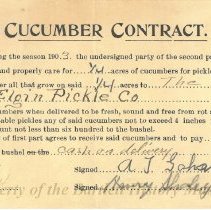 CUCUMBER CONTRACT.
ng the season 1903, the undersigned party of the second pa
and properly care for 1/4 acres of cucumbers for pickle
er all that grow on said 1/4 acres to The
Elgin Pickle Co
cumbers when delivered to be fresh, sound and free from rot
able pickles any of said cucumbers not to exceed 4 inches
unt not less than six hundred to the bushel.
of first part agrees to receive said cucumbers and to pay
bushel on the cash on delivery
Signed A. S.
Signed